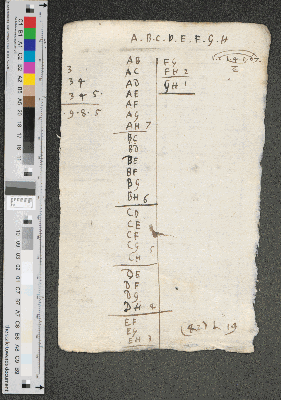 A.B.C.D.E.F.G.H
3
3 4
3 4 5.
9.8.5
AB
AC
AD
AE
AF
AG
AH 7
BC
BD
BE
BF
BG
BH 6
CD
CE
CF
CG 5
CH
DE
DF
DG
DH 4
EF
EG
EH 3
FG
FH 2
GH 1